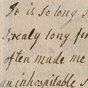 It is so long s
I realy long for
often made me
an inhospitable s